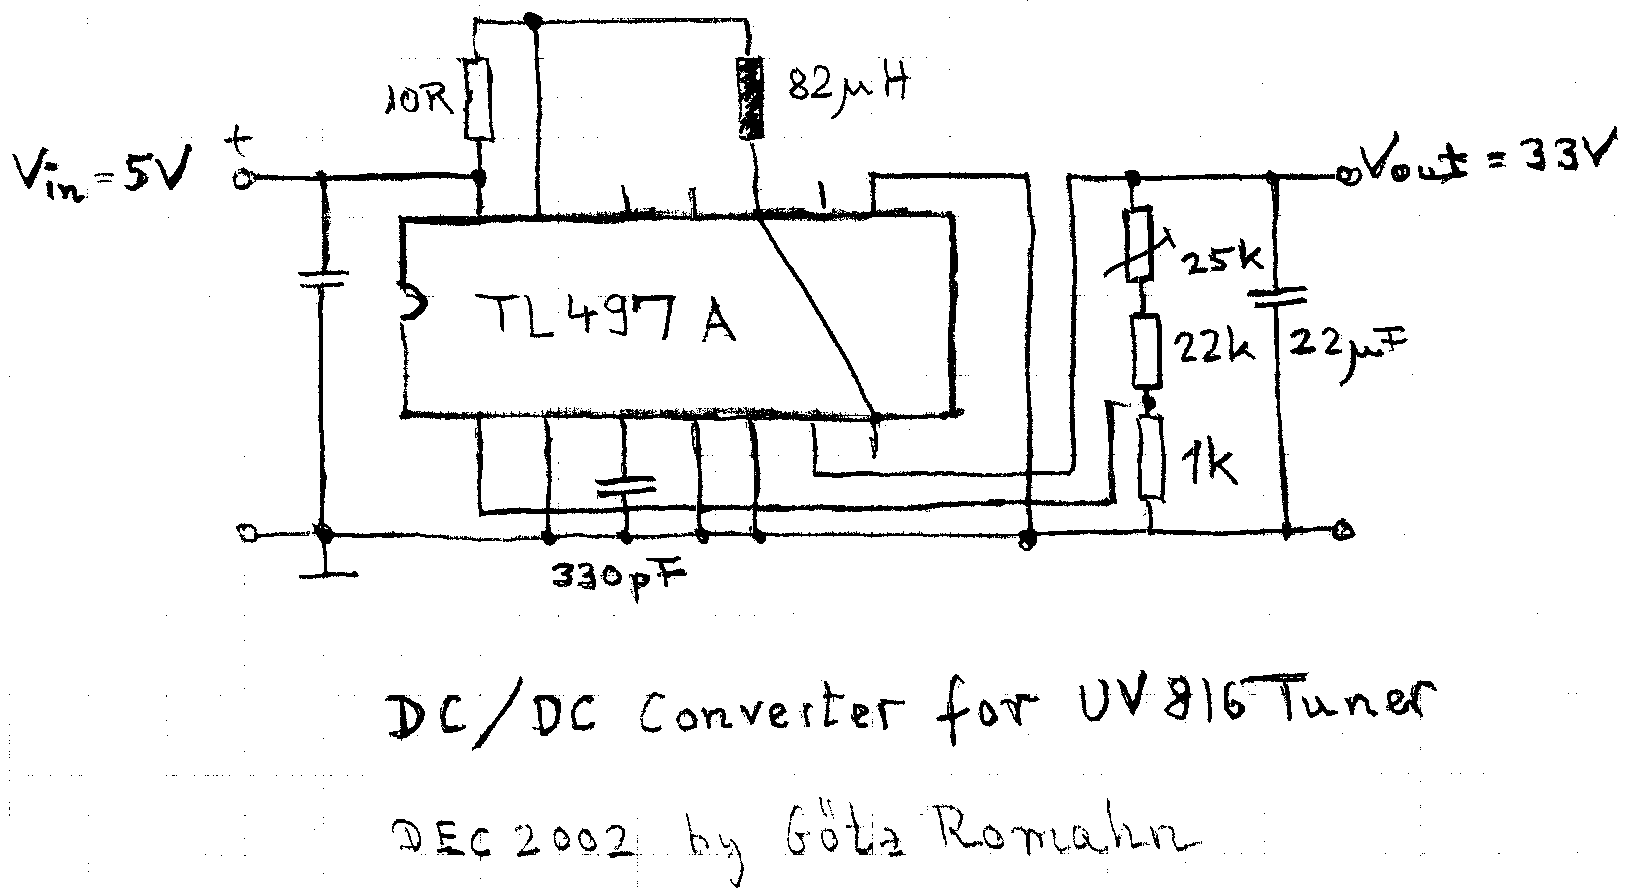 10R
82µH
+
Vin = 5V
Vout = 33V
25k
TL497A
22k
22µF
1k
330pF
DC/DC Converter for UV816 Tuner
DEC 2002 by Götz Romahn